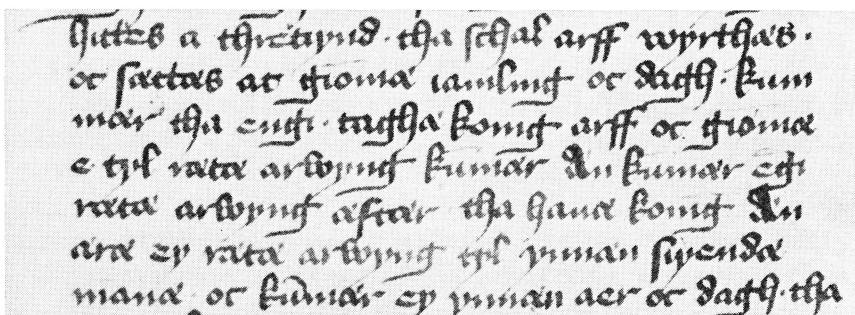 hittes a thretiynd · tha schal arff wyrthæs ·
oc sættæs at giømæ iamling oc dagh · kum
mær tha engi · taghæ konig arff oc giømæ
e tyl rætæ arwyng kūmær æn kumær egi
rætæ arwyng æfter tha hauæ konig æn
æræ ey rætæ arwyng tyl ynnæn siyendæ
manæ · oc kūmær ey ynnæn aer oc dagh · tha